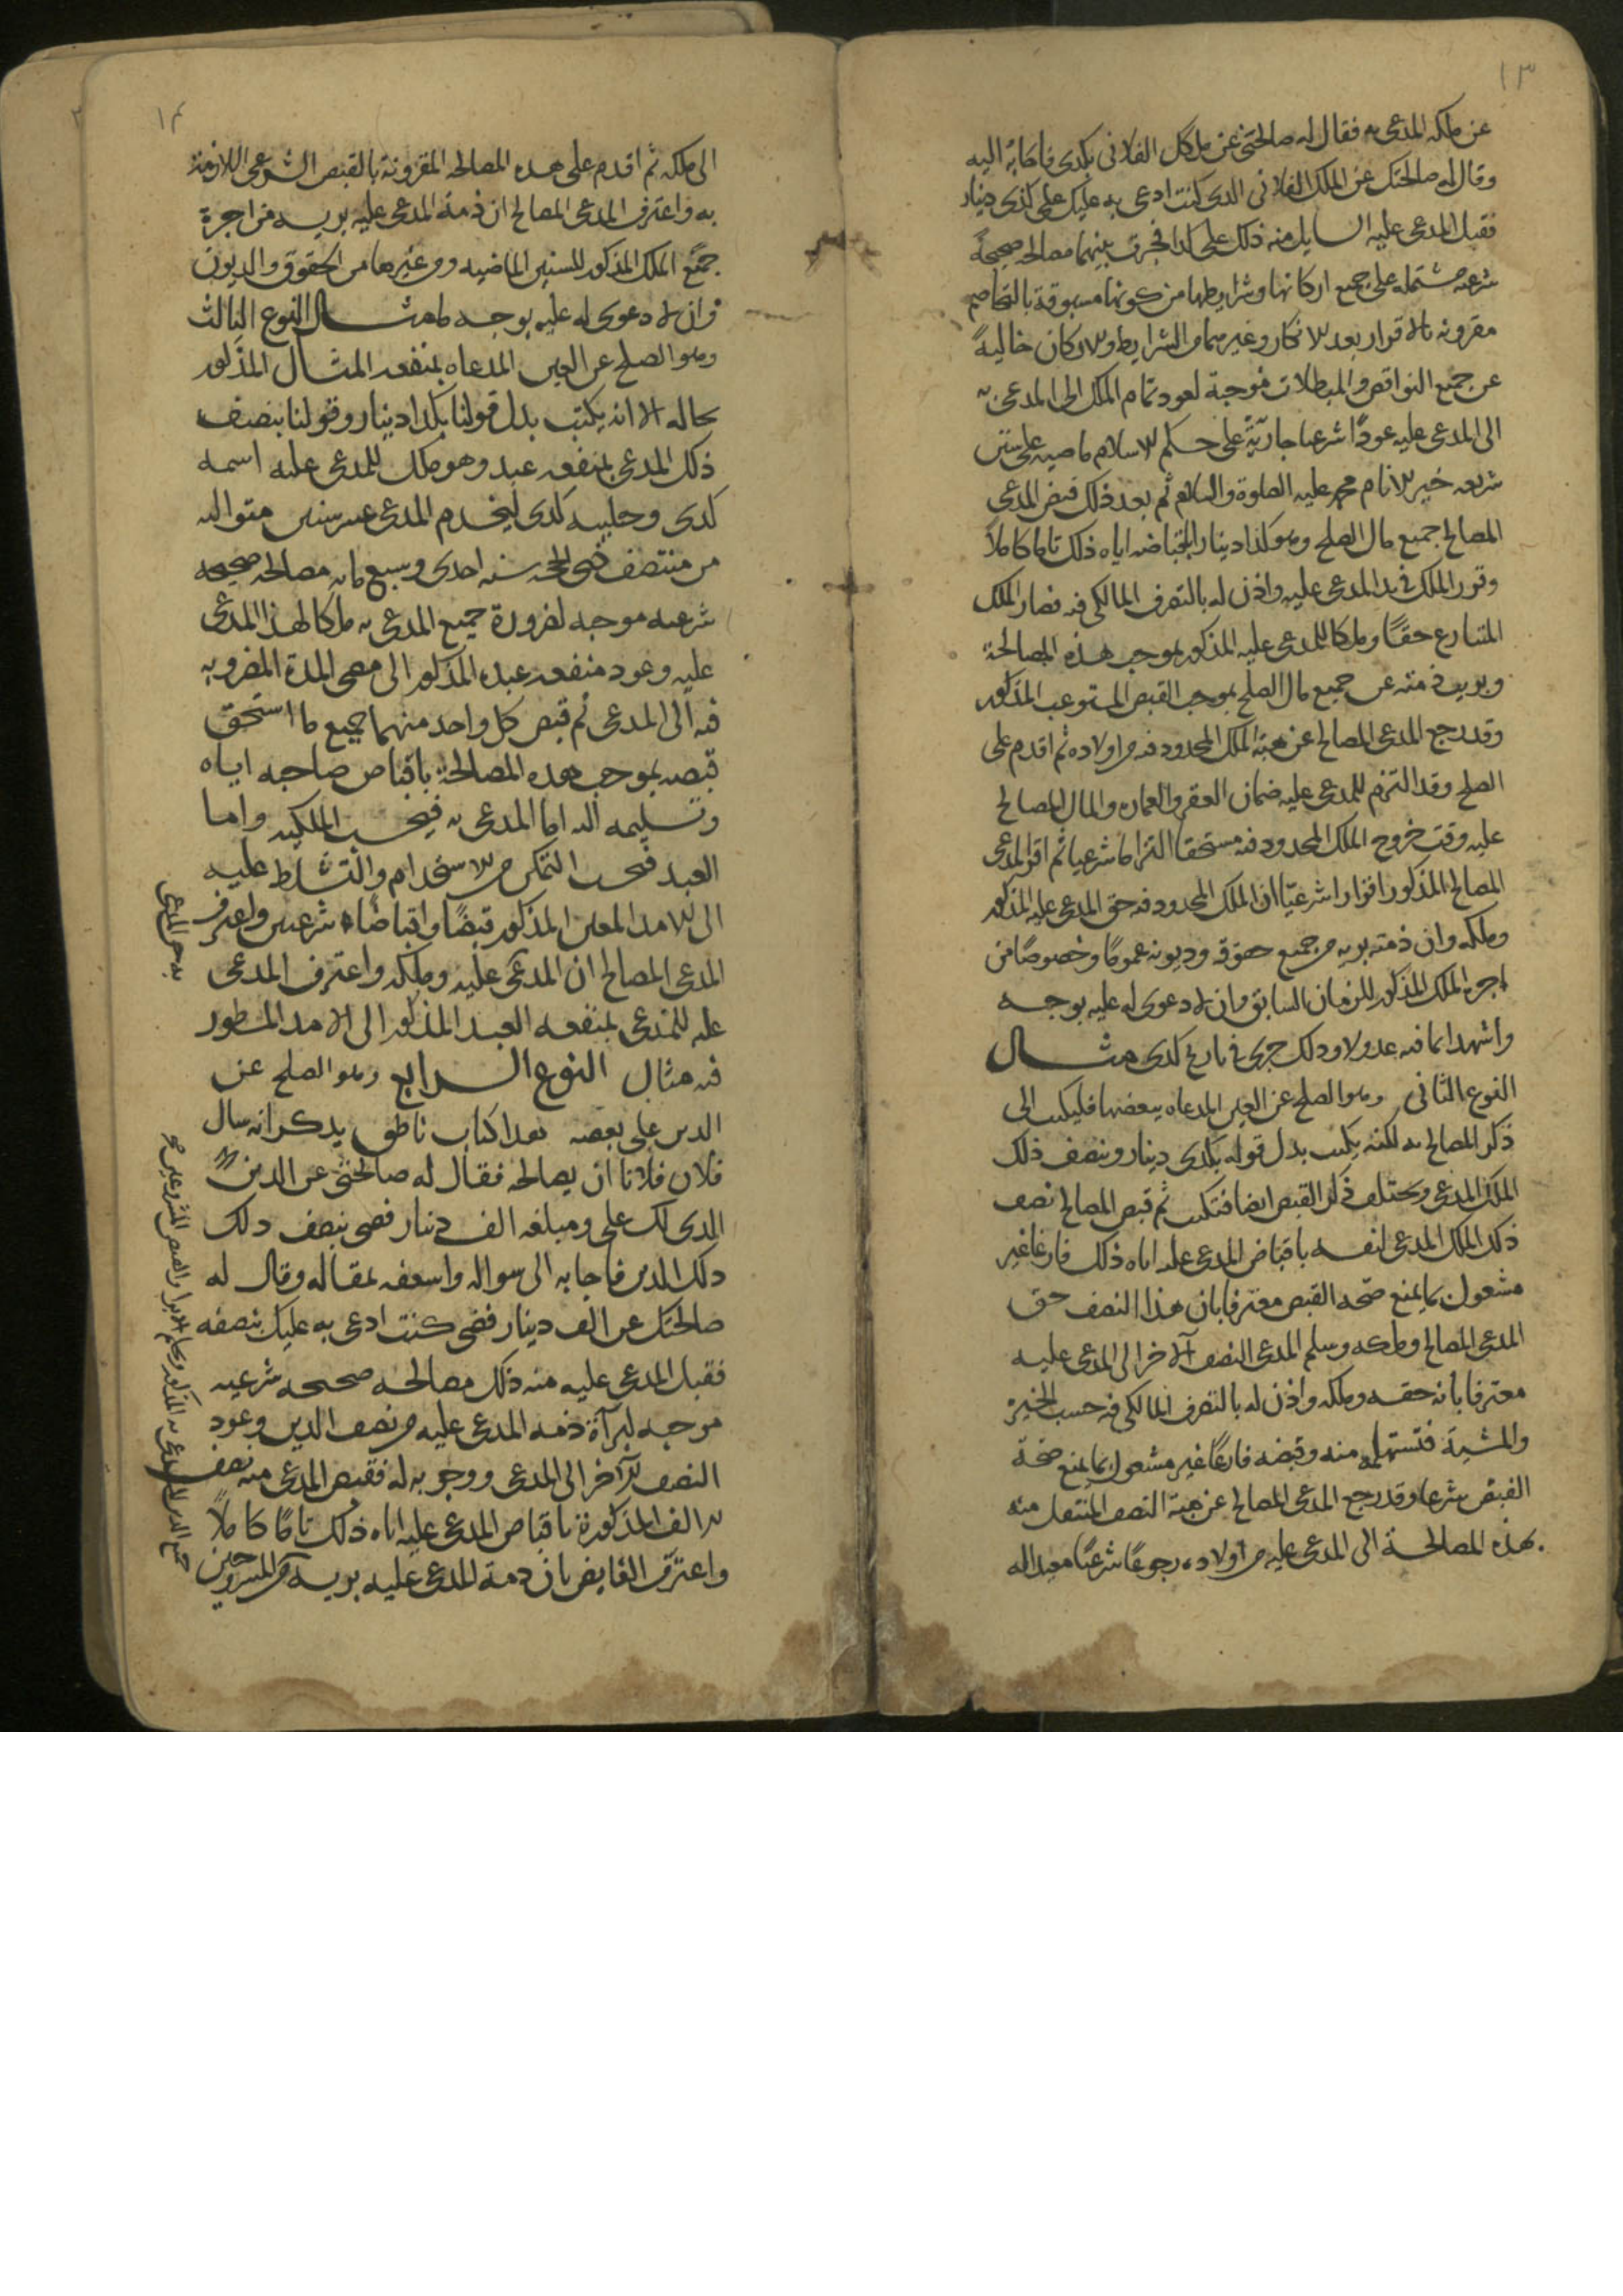 ١٣
عن ملكه المدعى به فقال له صالحني عن ملكك الفلاني بكدى فاجابه اليه
وقال له صالحتك عن الملك الفلاني الدى كنت ادعى به عليك على كذى دينار
فقبل المدعى عليه السايل منه ذلك على كدا فجرت بينهما مصالحه صحيحة
شرعيه مشتمله على جميع اركانها وشرايطها من كونها مسبوقة بالتخاصم
مقرونه بالاقرار بعد الانكار وغيرهما من الشرايط والاركان خاليةً
عن جميع النواقص والمبطلات موجبة لعود تمام الملك الى المدعى به
الى المدعى عليه عودًا شرعيا جاريةً على حكم الاسلام ماضيه على سنن
شريعه خير الانام محمد عليه الصلوة والسلام ثم بعد ذلك قبض المدعى
المصالح جميع مال الصلح وهو كذا دينار باقباضه اياه ذلك تاما كاملاً
وقرر الملك في يد المدعى عليه واذن له بالتصرف المالكى فيه فصار الملك
المتنازع حقًا وملكا للمدعى عليه المذكور بموجب هذه المصالحة
وبريت ذمته عن جميع مال الصلح بموجب القبض المستوعب المذكور
وقد رجع المدعى المصالح عن هبة الملك المحدود فيه من اولاده ثم اقدم على
الصلح وقد التزم للمدعى عليه ضمان العقر والعماره والمال المصالح
عليه وقت خروج الملك المحدود فيه مستحقا التزاما شرعيا ثم اقر المدعى
المصالح المذكور اقرارا شرعيّا ان الملك المحدود فيه حق المدعى عليه المذكور
وملكه وان ذمته بريه من جميع حقوقه وديونه عمومًا وخصوصًا من
اجرة الملك المذكور للزمان السابق وان لا دعوى له عليه بوجه
واشهدا بما فيه عدولا وذلك جرى في تاريخ كدى مثال
النوع الثاني وهو الصلح عن العين المدعاه ببعضها فليكتب الى
ذكر المصالح به لكنه يكتب بدل قوله بكدى دينار وبنصف ذلك
الملك المدعى ويختلف ذكر القبض ايضا فتكتب ثم قبض المصالح نصف
ذلك الملك المدعى لنفسه باقباض المدعى عليه اياه ذلك فارغا غير
مشغول بما يمنع صحه القبض معترفا بان هذا النصف حق
المدعى المصالح وملكه وسلم المدعى النصف الآخر الى المدعى عليه
معترفا بانه حقه وملكه واذن له بالتصرف المالكى فيه حسب الخيرة
والمشية فتسلمه منه وقبضه فارغًا غير مشغول بما يمنع صحة
القبض شرعا وقد رجع المدعى المصالح عن هبة النصف المنتقل منه
بهذه المصالحة الى المدعى عليه من اولاده رجوعًا شرعيًا معيدا له
١٤
الى ملكه ثم اقدم على هذه المصالحه المقرونة بالقبض الشرعى اللازمة
به واعترف المدعى المصالح ان ذمة المدعى عليه بريه من اجرة
جميع الملك المذكور للسنين الماضيه ومن غيرها من الحقوق والديون
وان لا دعوى له عليه بوجه ما مثال النوع الثالث
وهو الصلح عن العين المدعاه بمنفعه المثال المذكور
بحاله الا انه يكتب بدل قولنا بكدا دينار وقولنا بنصف
ذلك المدعى بمنفعه عبد وهو ملك للمدعى عليه اسمه
كدى وحليته كدى ليخدم المدعى عشر سنين متواليه
من منتصف ذى الحجه سنه احدى وسبع مايه مصالحه صحيحه
شرعيه موجبه لضرورة جميع المدعى به ملكا لهذا المدعى
عليه وعود منفعه عبده المذكور الى مضى المدة المضروبه
فيه الى المدعى ثم قبض كل واحد منهما جميع ما استحق
قبضه بموجب هذه المصالحة باقباض صاحبه اياه
وتسليمه اليه اما المدعى به فبحسب الملكيه واما
العبد فبحسب التمكن من الاستخدام والتسلط عليه
الى الامد المعين المذكور قبضًا واقباضًا شرعيين واعترف
المدعى المصالح ان المدعى عليه وملكه واعترف المدعى
عليه للمدعى بمنفعه العبد المذكور الى الامد المسطور
فيه مثال النوع الرابع وهو الصلح عن
الدين على بعضه هذا كتاب ناطق بذكر انه سال
فلان فلانا ان يصالحه فقال له صالحنى عن الدين
الدى لك على ومبلغه الف دينار فضى بنصف دلك
دلك الدين فاجابه الى سواله واسعفه بمقاله وقال له
صالحتك عن الف دينار فضى كنت ادعى به عليك بنصفه
فقبل المدعى عليه منه ذلك مصالحه صحيحه شرعيه
موجبه لبرآة ذمه المدعى عليه من نصف الدين وعود
النصف الآخر الى المدعى ووجوبه له فقبض المدعى منه نصف
الالف المذكورة باقباض المدعى عليه اياه ذلك تامًا كاملاً
واعترف القابض بان ذمة المدعى عليه بريه من